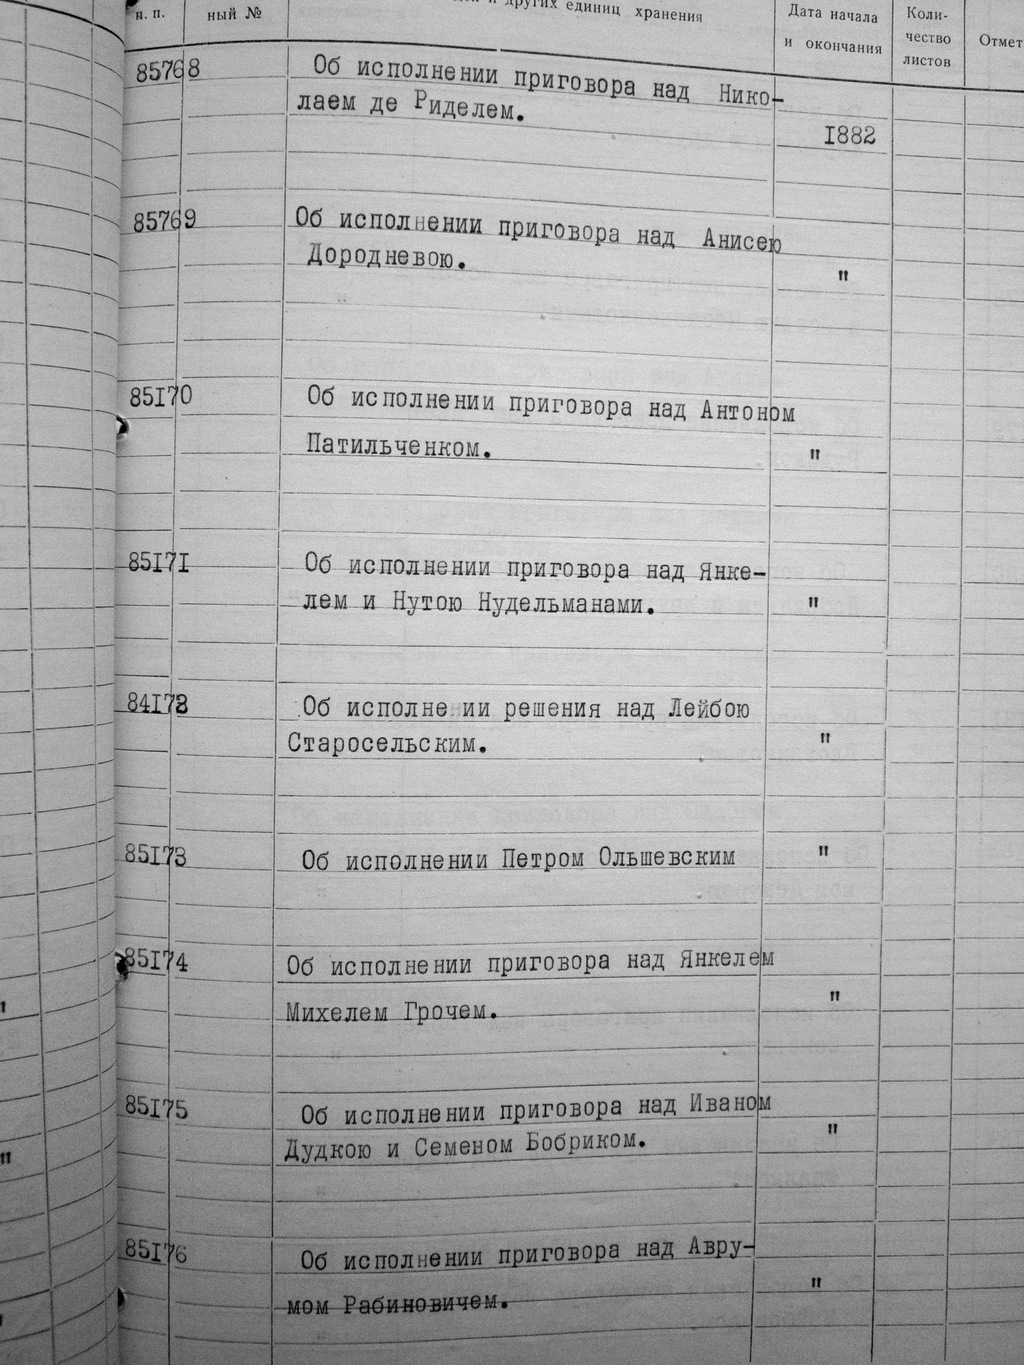 п. п.
ный №
и других единиц хранения
Дата начала
и окончания
Коли-
чество
листов
Отмет
85768 Об исполнении приговора над Нико-
лаем де Риделем.
1882
85769 Об исполнении приговора над Анисею
Дородневою. "
85170 Об исполнении приговора над Антоном
Патильченком. "
85171 Об исполнении приговора над Янке-
лем и Нутою Нудельманами. "
84172 Об исполне ии решения над Лейбою
Старосельским. "
85173 Об исполнении Петром Ольшевским "
85174 Об исполнении приговора над Янкелем
Михелем Грочем. "
85175 Об исполнении приговора над Иваном
Дудкою и Семеном Бобриком. "
85176 Об исполнении приговора над Авру-
мом Рабиновичем. "